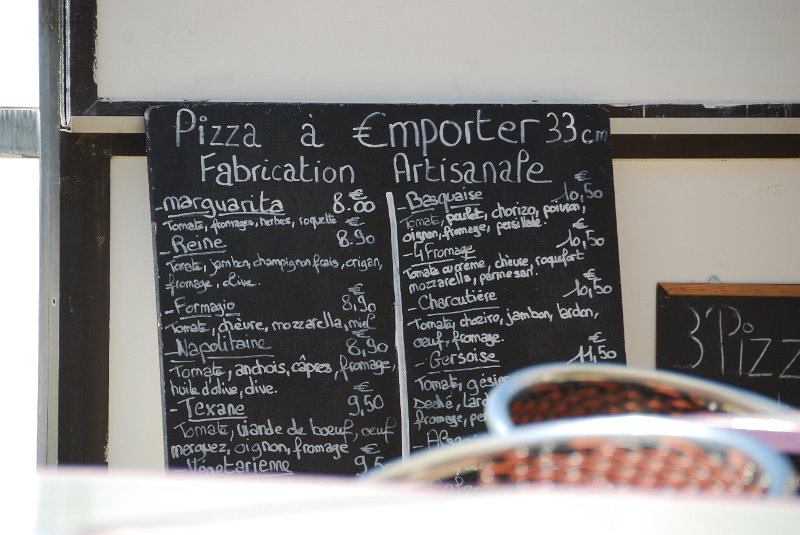 Pizza à €mporter 33 cm
Fabrication Artisanale
- marguarita 8.00
Tomate, fromages, herbes, roquette
€
- Reine 8.90
Tomate, jambon, champignon frais, origan,
fromage, olive.
€
- Formagio 8,90
Tomate, chèvre, mozzarella, miel
€
- Napolitaine 8,90
Tomate, anchois, câpres, fromage,
huile d'olive, olive.
€
- Texane 9,50
Tomate, viande de boeuf, oeuf
merguez, oignon, fromage
€
- Végétarienne 9,5
€
- Basquaise 10,50
Tomate, poulet, chorizo, poivron,
oignon, fromage, persillade.
€
- 4 Fromage 10,50
Tomate ou crème, chèvre, roquefort
mozzarella, parmesan.
€
- Charcutière 10,50
Tomate, choziro, jambon, lardon,
oeuf, fromage.
€
- Gersoise 11,50
Tomate,
fromage,
3 Pizz